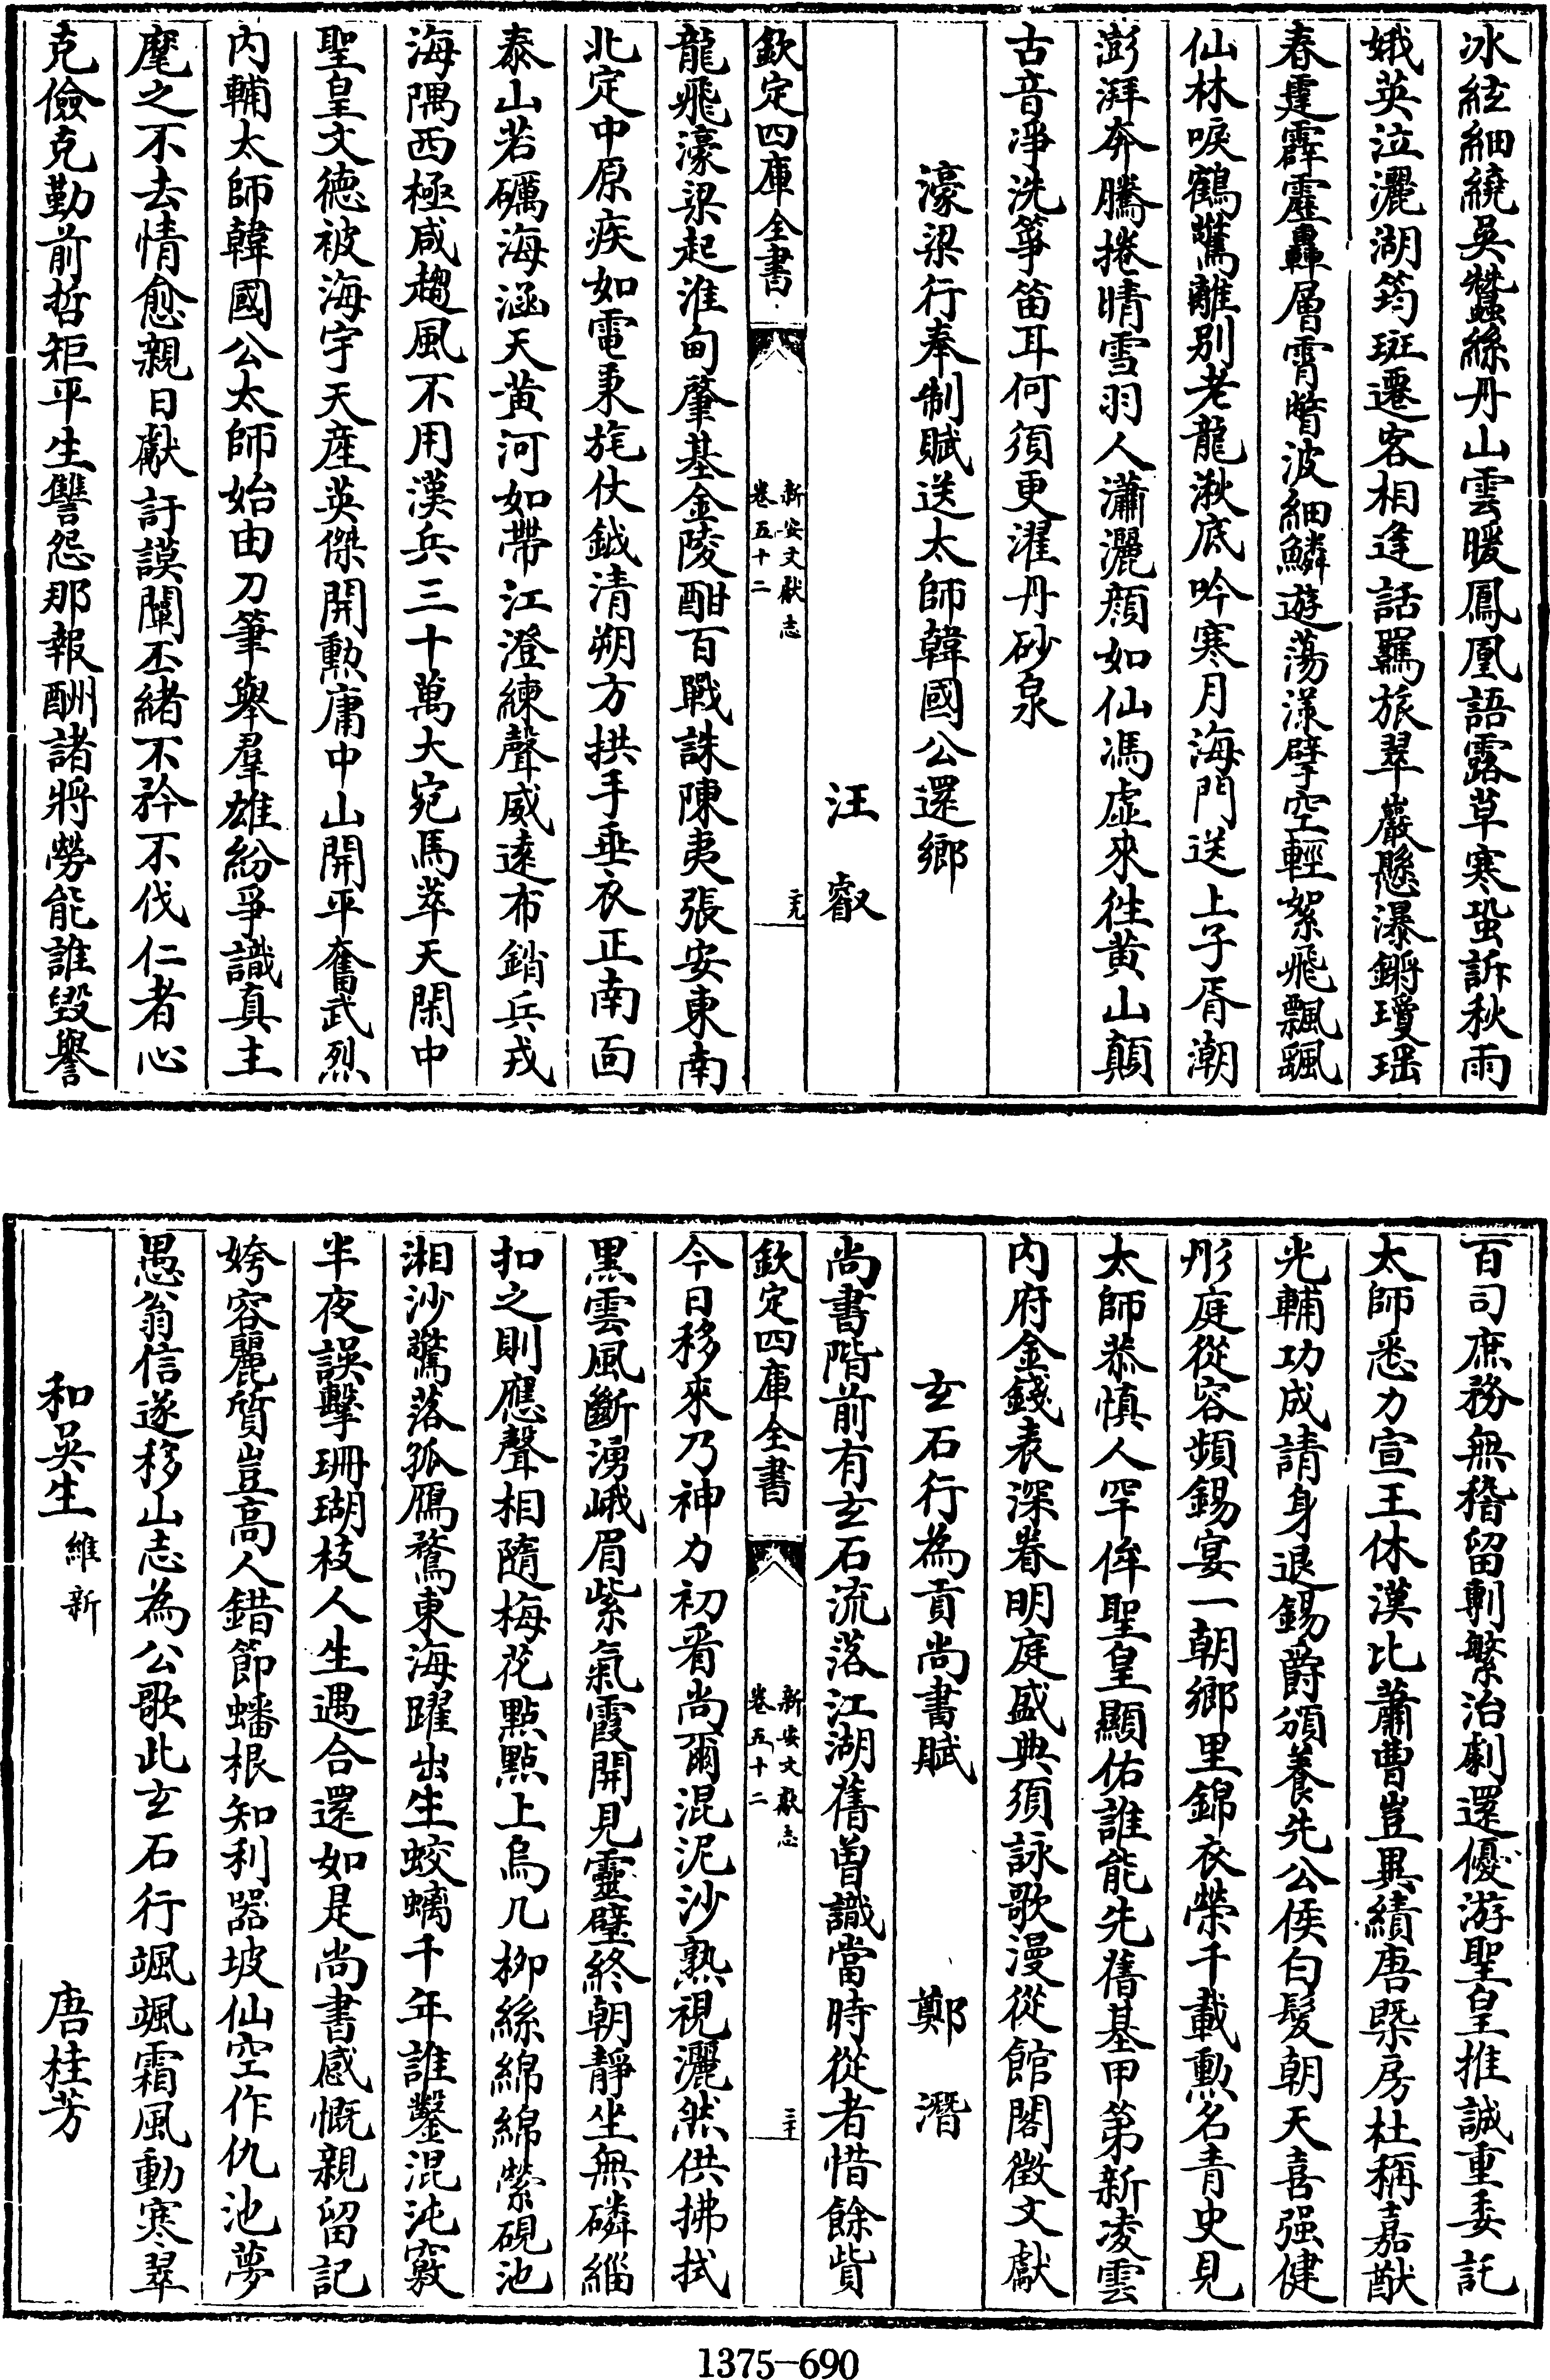 冰絃細繞吳蠶絲丹山雲暖鳳凰語露草寒蛩訴秋雨
娥英泣灑湖筠斑遷客相逢話羈旅翠巖懸瀑鏘瓊瑶
春霆霹靂轟層霄暗波細鱗遊蕩漾擘空輕絮飛飄飄
仙林唳鶴驚離別老龍湫底吟寒月海門送上子胥潮
澎湃奔騰捲晴雪羽人瀟灑顔如仙馮虛來徃黄山顛
古音凈洗箏笛耳何須更濯丹砂泉
濠梁行奉制賦送太師韓國公還鄉
汪叡
欽定四庫全書
新安文獻志
卷五十二
二十九
龍飛濠梁起淮甸肇基金陵酣百戰誅陳夷張安東南
北定中原疾如電秉旄仗鉞清朔方拱手垂衣正南面
泰山若礪海涵天黃河如帶江澄練聲威遠布銷兵戎
海隅西極咸趨風不用漢兵三十萬大宛馬萃天閑中
聖皇文德被海宇天産英傑開勲庸中山開平奮武烈
内輔太師韓國公太師始由刀筆舉羣雄紛爭識真主
麾之不去情愈親日獻訏謨闡丕緒不矜不伐仁者心
克儉克勤前哲矩平生讐怨那報酬諸將勞能誰毀譽
百司庶務無稽留剸繁治劇還優游聖皇推誠重委託
太師悉力宣王休漢比蕭曹豈異績唐槩房杜稱嘉猷
光輔功成請身退錫爵頒養先公侯白髮朝天喜强健
彤庭從容頻錫宴一朝鄉里錦衣榮千載勲名青史見
太師恭慎人罕侔聖皇顯佑誰能先舊基甲第新凌雲
内府金錢表深眷明庭盛典須詠歌漫從館閣徵文獻
玄石行為貢尚書賦
鄭潛
尚書階前有玄石流落江湖舊曾識當時從者惜餘貲
欽定四庫全書
新安文獻志
卷五十二
三十
今日移來乃神力初看尚爾混泥沙熟視灑然供拂拭
黒雲風斷湧峨眉紫氣霞開見靈璧終朝靜坐無磷緇
扣之則應聲相隨梅花點點上烏几栁絲綿綿縈硯池
湘沙驚落孤鴈鶩東海躍出生蛟螭千年誰鑿混沌竅
半夜誤擊珊瑚枝人生遇合還如是尚書感慨親留記
姱容麗質豈高人錯節蟠根知利器坡仙空作仇池夢
愚翁信遂移山志為公歌此玄石行颯颯霜風動寒翠
和吳生維新
唐桂芳
1375-690